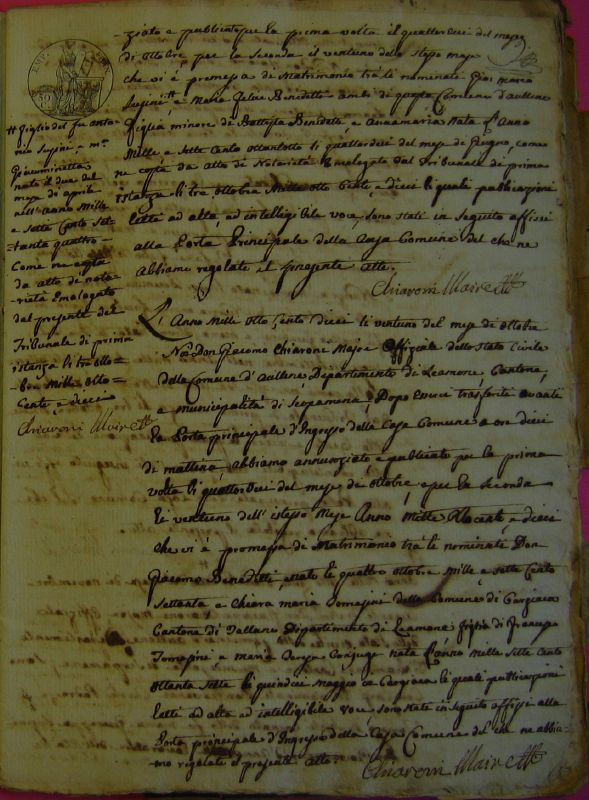 ziato e publicato per la prima volta il quattordeci del mese
di Ottobre per la Seconda il ventuno dello stesso mese
che vi è promessa di Matrimonio trà li nominati Gio: Maria
Susini ╫ e Maria Felice Benedetti ambi di questa Comune d'aullene
figlia minore di Battista Benedetti e Annamaria Nata l'Anno
Mille e Sette Cento Ottantotto li quattordeci del mese di Giugno, come
ne costa da atto di Notorietà Emologato dal Tribunale di prima
istanza li tre ottobre Mille otto Cento, e dieci li quali pubblicazioni
lette ad alta, ed intelligibile voce, Sono stati in Seguito affissi
alla Porta Principale della Casa Comune del che ne
abbiamo regolato il presente atto.
Chiaroni Maire
╫ figlio del fu Anto-
nio Susini e Mª
Giacuminetta
nato il due del
mese di aprile
nell'anno Mille
e Sette Cento Set-
tanta quattro
Come ne costa
da atto di noto-
rietà Emologato
dal presente del
Tribunale di prima
istanza li tre otto-
bre Mille otto
Cento, e dieci
Chiaroni Maire
L'Anno Mille Otto Cento Dieci li ventuno del mese di Ottobre
Noi Don Giacomo Chiaroni Maire Offiziale dello Stato Civile
della Comune d'Aullene, Dipartimento di Leamone, Cantone,
e municipalità di Scopamena, Dopo Esserci trasferto avanti
la Porta principale d'Ingresso della Casa Comune a ore dieci
di mattina, abbiamo annunziato, e publicato per la prima
volta li quattordeci del mese di Ottobre e per la seconda
li ventuno dell'istesso Mese Anno Mille Otto Cento e dieci
che vi è promessa di Matrimonio trà li nominati Don
Giacomo Benedetti, nato li quattro ottobre Mille e Sette Cento
Settanta e Chiara Maria Tomasini della Comune di Cargiaca
Cantone di Tallano Dipartimento di Leamone figlia di Francesco
Tomasini e Maria Teresa Conjuge nata l'Anno Mille Sette Cento
Ottanta Sette li quindici Maggio in Cargiaca li quali publicazioni
letti ad alta ed intelligibile voce sono stati in seguito affissi alla
Porta principale d'Ingresso della Casa Comune del che ne abbia-
mo regolato il presente atto.
Chiaroni Maire